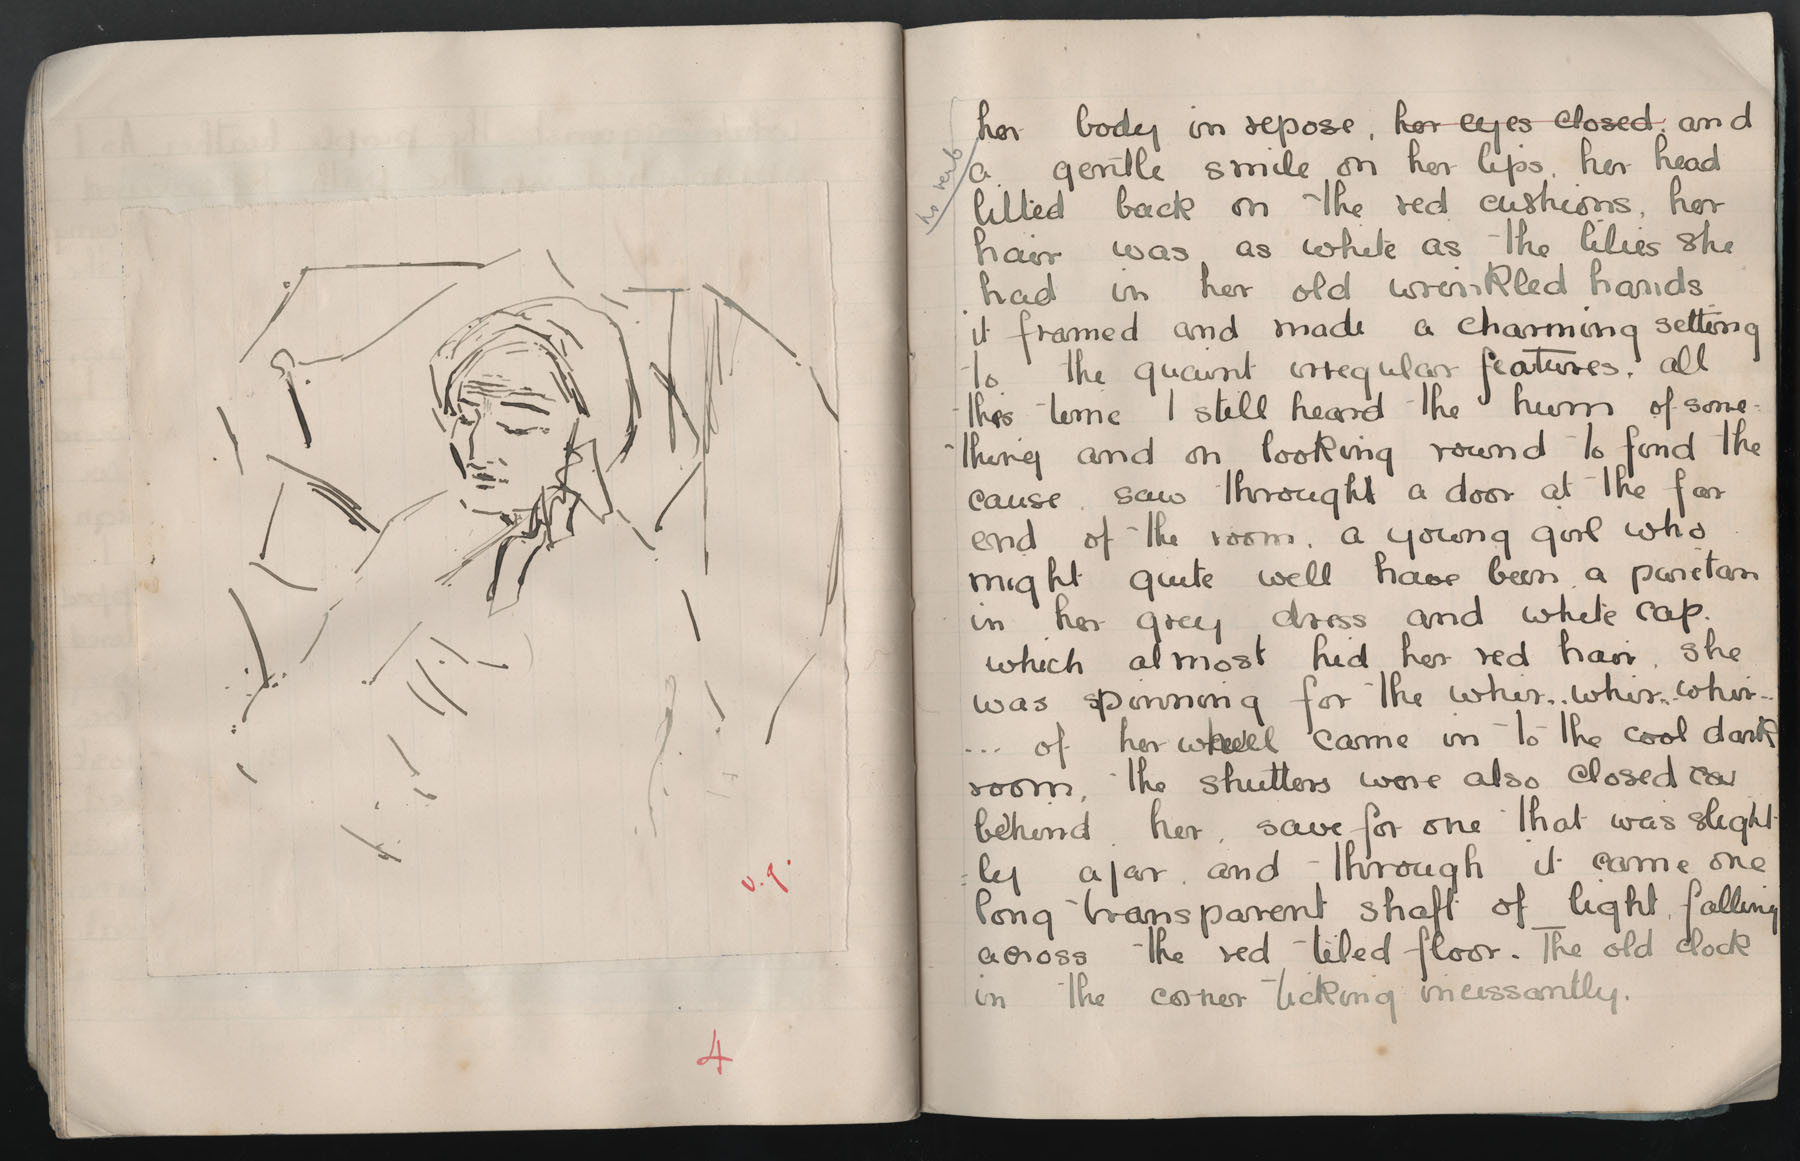 v.g.
4
no verb
her body in repose, her eyes closed, and
a gentle smile on her lips, her head
lilled back on the red cushions, her
hair was as white as the lilies she
had in her old wrinkled hands
it framed and made a charming setting
to the quaint irregular features. all
this time I still heard the hum of some-
thing and on looking round to find the
cause, saw throught a door at the far
end of the room, a young girl who
might quite well have been a puritan
in her grey dress and white cap.
which almost hid her red hair, she
was spinning for the whir.. whir.. whir..
... of her wheel came in to the cool dark
room, the shutters were also closed
behind her, save for one that was slight-
ly ajar, and through it came one
long transparent shaft of light, falling
across the red tiled floor. The old clock
in the corner ticking incessantly.